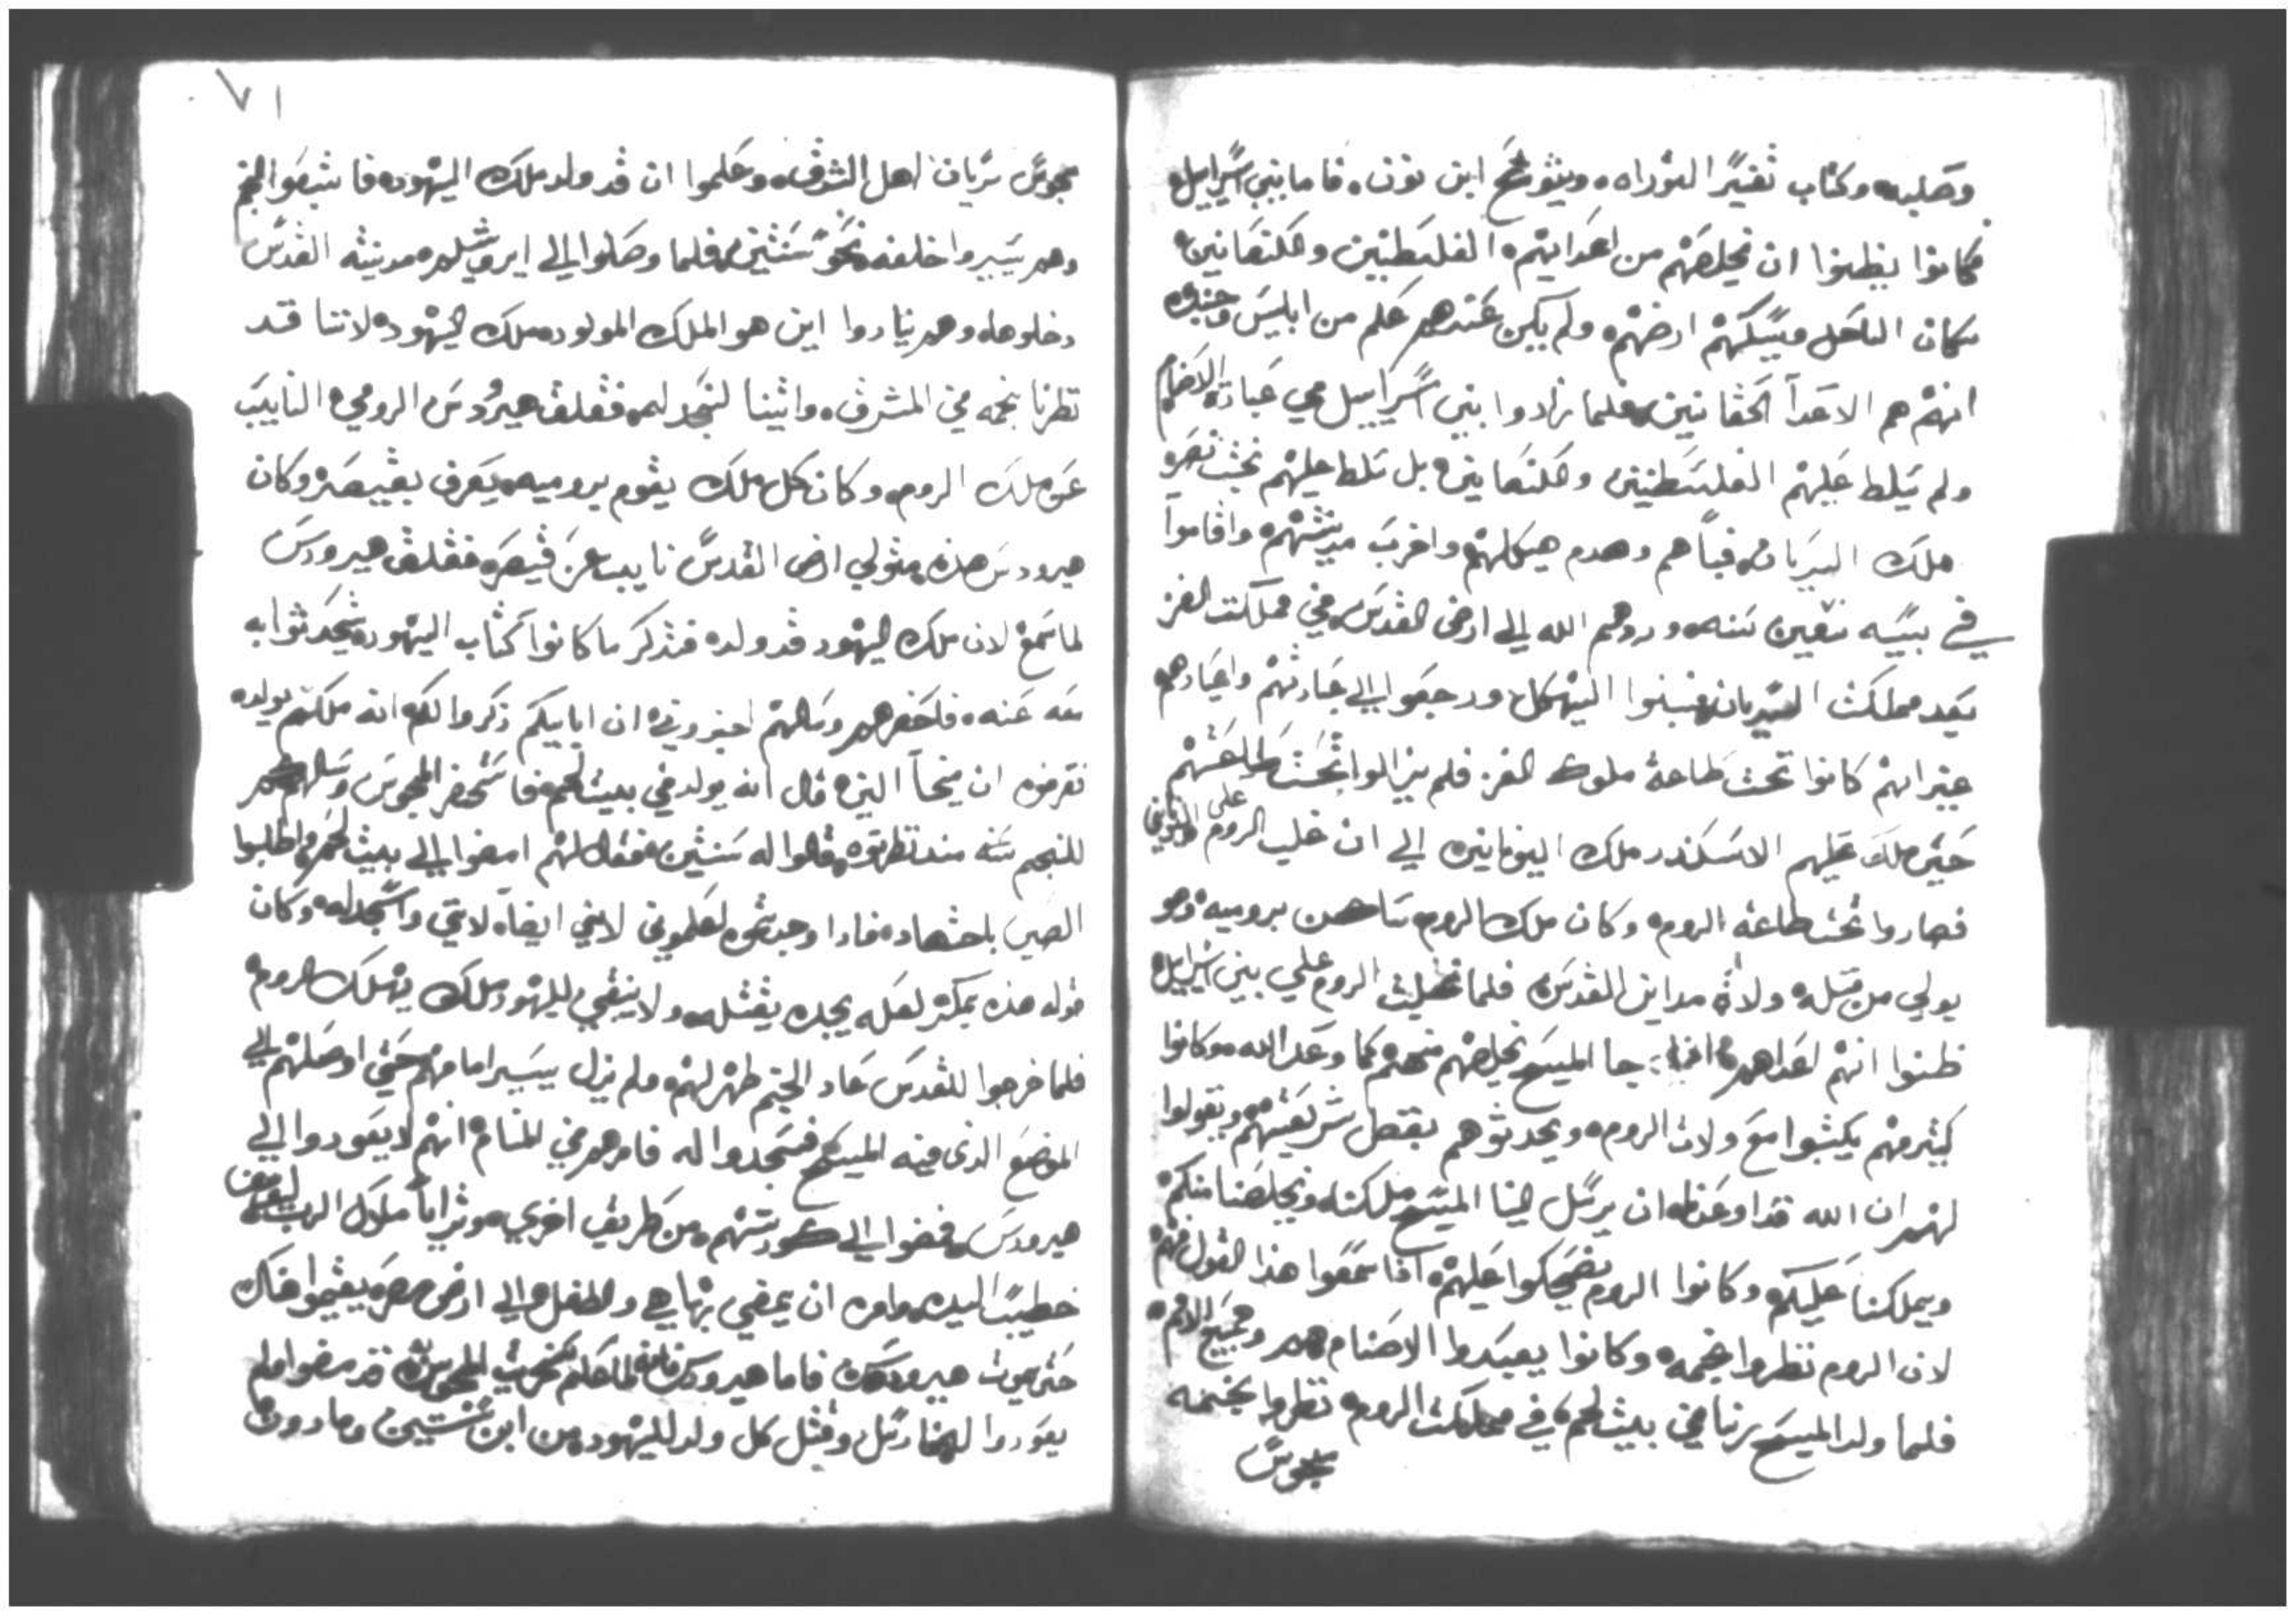 وصلبه وكتاب تفسير التوراه ويشوع ابن نون فاما بني اسراييل
كانوا يظنوا ان يخلصهم من اعدايهم الفلسطنيين والكنعانيين
سكان الساحل ويسكنهم ارضهم ولم يكن عندهم علم من ابليس وجنده
انهم هم الاعدآ الحقانيين فلما زادوا بني اسراييل في عبادة الاصنام
ولم تسلط عليهم الفلسطنيين والكنعانين بل سلط عليهم بخت نصر
ملك السريان فسباهم وهدم هيكلهم واخرب مدينتهم واقاموا
في سبيه سبعين سنه وردهم الله الي ارض القدس في مملكت الفرس
بعد مملكت السريان فبنوا الهيكل ورجعوا الي عبادتهم واعيادهم
غير انهم كانوا تحت طاعة ملوك الفرس فلم يزالوا تحت طاعتهم
حتي ملك عليهم الاسكندر ملك اليونانين الي ان غلب الروم علي اليوناني
فصاروا تحت طاعة الروم وكان ملك الروم ساكن بروميه وهو
يولي من قبله ولاة مداين القدس فلما تملكت الروم علي بني اسراييل
ظنوا انهم اعداهم اذا جا المسيح يخلصهم منهم كما وعد الله وكانوا
كثير منهم يكتبوا مع ولات الروم ويحدثوهم بفضل شريعتهم ويقولوا
لهم ان الله قد اوعدنا ان يرسل الينا المسيح ملكنا ويخلصنا منكم
ويملكنا عليكم وكانوا الروم يضحكوا عليهم اذا سمعوا هذا القول منهم
لان الروم نظروا نجمه وكانوا يعبدوا الاصنام هم وجميع الامم
فلما ولد المسيح ربنا في بيت لحم في مملكت الروم نظروا نجمه
مجوس
٧١
مجوس سريان اهل الشرق وعلموا ان قد ولد ملك اليهود فاتبعوا النجم
وهم يسيروا خلفه نحو سنتين فلما وصلوا الي ايروشليم مدينة القدس
دخلوها وهم ينادوا اين هو الملك المولود ملك اليهود لاننا قد
نظرنا نجمه في المشرق واتينا لنسجد له فقلق هيرودس الرومي النايب
عن ملك الروم وكان كل ملك يقوم بروميه يعرف بقيصر وكان
هيرودس هذه متولي ارض القدس نايب عن قيصر فقلق هيرودس
لما سمع لان ملك اليهود قد ولد فتذكر ما كانوا كتاب اليهود يتحدثوا به
معه عنه فاحضرهم وسالهم اخبروني ان اباييكم ذكروا لكم انه ملككم يولد
فعرفوه ان ميخآ النبي قال انه يولد في بيت لحم فاستحضر المجوس وسالهم كم
للنجم سنه منذ نظرتوه قالوا له سنتين فقال لهم امضوا الي بيت لحم واطلبوا
الصبي باجتهاد فاذا وجدتموه اعلموني لاني ايضآ لاتي واسجد له وكان
قوله هذه بمكر لعله يجده يقتله ولا يبقي لليهود ملك يهلك الروم
فلما خرجوا للقدس عاد النجم ظهر لهم ولم يزل يسير امامهم حتي اوصلهم الي
الموضع الذي فيه المسيح فسجدوا له فامرهم في المنام انهم لا يعودوا الي
هيرودس فمضوا الي كورتهم من طريق اخري وترايا ملاك الرب ليوسف
خطيبًا اليه وامره ان يمضي بهاهي والطفل الي ارض مصر يقيموا هناك
حتي يموت هيرودس فاما هيرودس فانه لما علم المجوس قد مضوا ولم
يعودوا اليه ارسل وقتل كل ولد لليهود من ابن سنتين وما دون